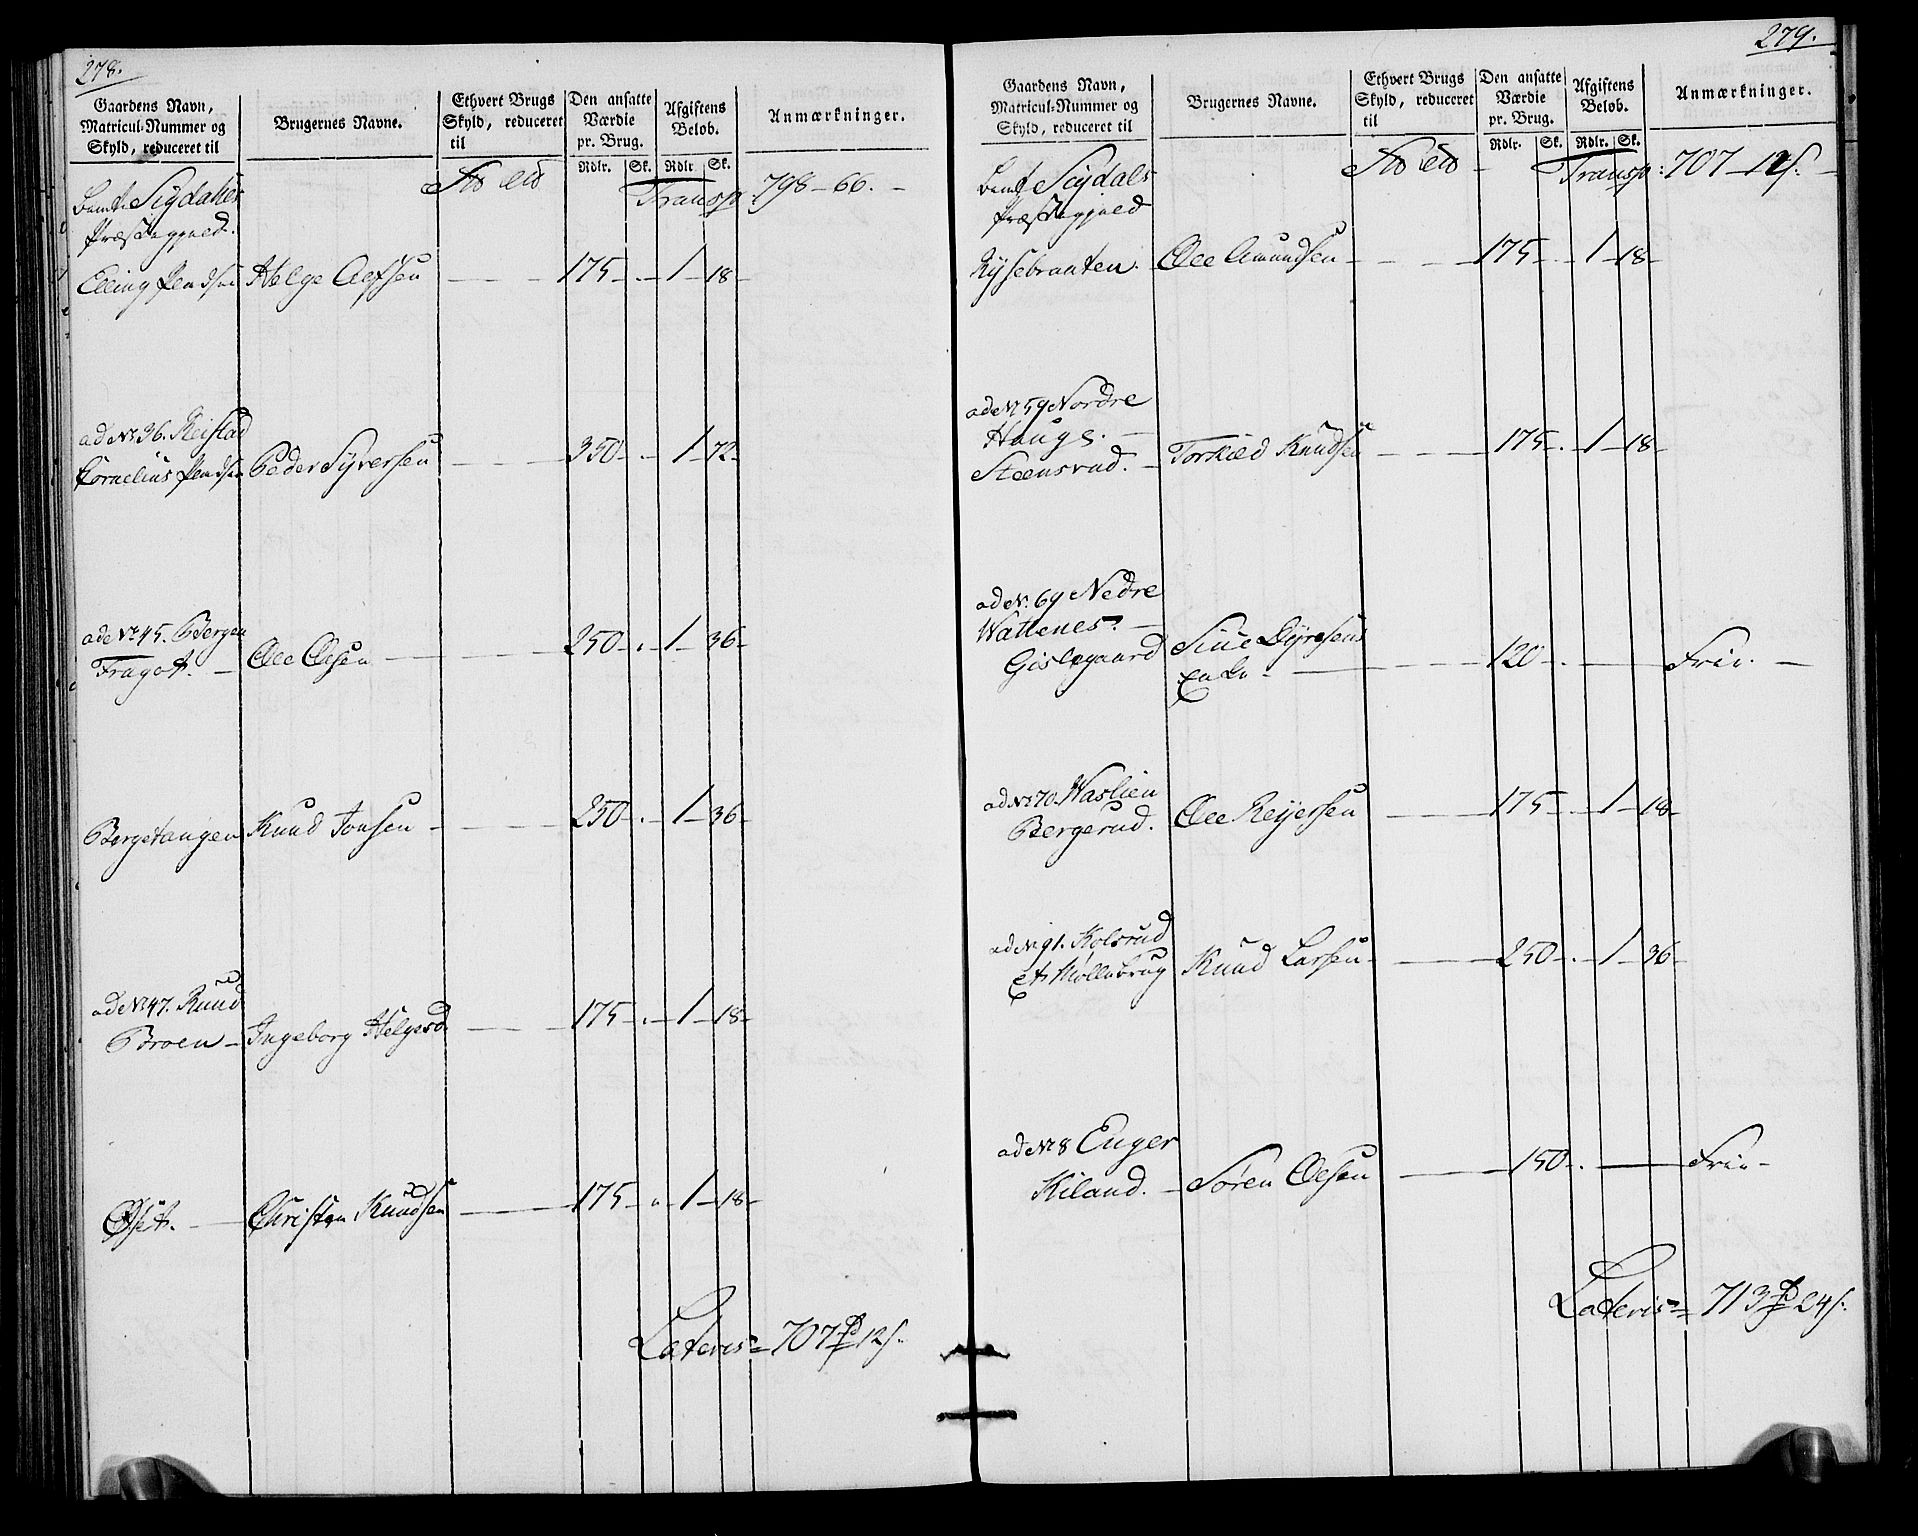 278.
Gaardens Navn, Matricul-Nummer og Skyld, reduceret til
Brugernes Navne.
Ethvert Brugs Skyld, reduceret til
Den ansatte Værdie pr. Brug.
Rdlr. Sk.
Afgiftens Beløb.
Rdlr Sk.
Anmærkninger.
Transp 798 - 66. -
Sigdahls
Præstegjæld.
Elling Pladsen Helge Olefsen - - 175 - . - 1 - 18 -
ad No 36. Reistad
Cornelius Pladsen Peder Syversen - - 350 - . - 1 - 72 -
ad No 45. Bergan
Fragot. - Ole Olsen - - 250 - . - 1 - 36 -
Bergetangen Knud Jonsen - - 250 - . - 1 - 36 -
ad No 47. Ruud
Broen - Ingeborg Helgesd. - - 175 - . - 1 - 18 -
Øset. - Christen Knudsen - - 175 - . - 1 - 18 -
Lateris = 707 12 s.
279.
Gaardens Navn, Matricul-Nummer og Skyld, reduceret til
Brugernes Navne.
Ethvert Brugs Skyld, reduceret til
Den ansatte Værdie pr. Brug.
Rdlr. Sk.
Afgiftens Beløb.
Rdlr. Sk.
Anmærkninger.
Transp: 707 - 12 s. -
Sigdals
Præstegjæld
Rysebraaten. - Ole Amundsen - - 175 - . - 1 - 18 -
ad No 59 Nordre
Houg s. -
Steensrud. - Torkild Knudsen - - 175 - . - 1 - 18 -
ad No. 69 Nedre
Wattenes. -
Gislegaard Siue Dyresens
Enke - - 120 - . - Frie. -
ad No 70. Waslien
Bergerud. Ole Reyersen - - 175 - . - 1 - 18 -
ad No 91. Kolsrud
et Møllebrug Knud Larsen - - 250 - . - 1 - 36 -
ad No 8 Enger
Kiland. - Søren Olsen - - 150 - . - Frie -
Lateris = 713 24 s.